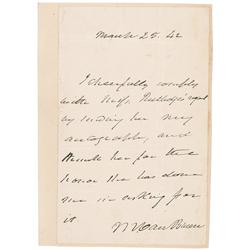 March 25. 42
I cheerfully comply
with Miss Rutledge's request
by sending her my
autograph, and
thank her for the
honor she has done
me in asking for
it
M Van Buren